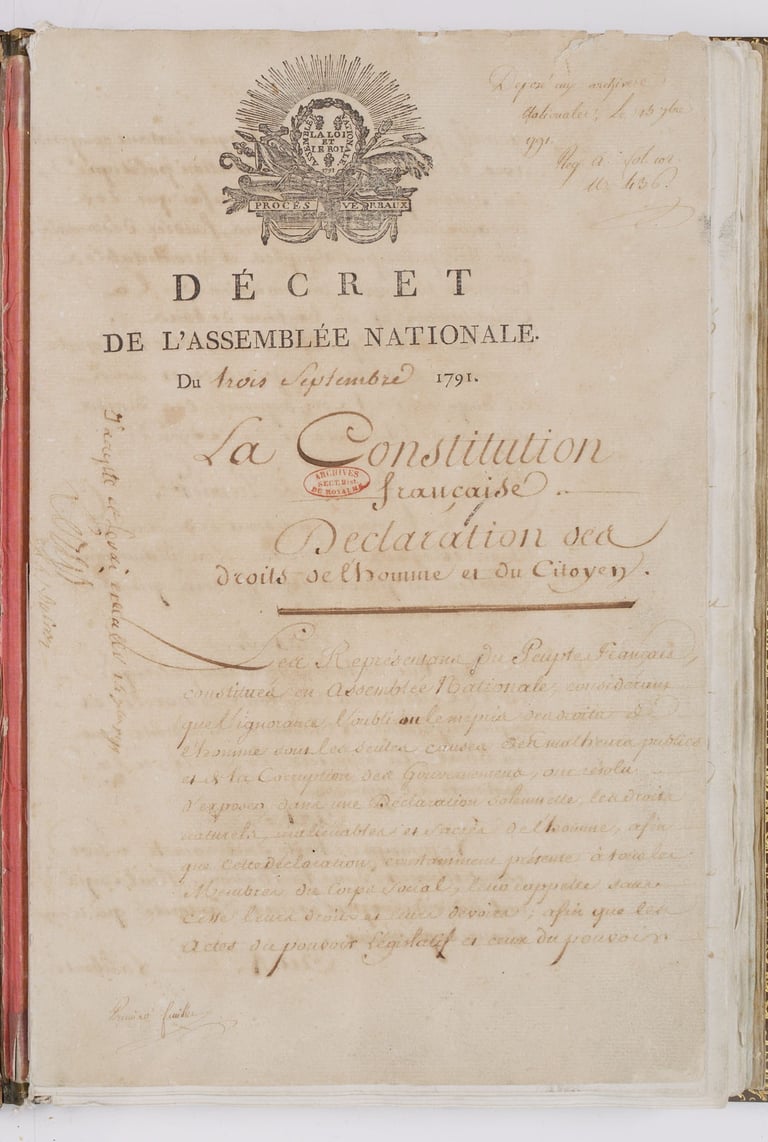 ASSEMBLÉE NATIONALE
LA LOI
ET
LE ROI
1791
PROCÈS VERBAUX
Déposé aux archives
nationales, le 15 7bre
1791.
Reg. A. fol. 101
n.° 436.
DÉCRET
DE L'ASSEMBLÉE NATIONALE.
Du trois Septembre 1791.
La Constitution
française.
ARCHIVES
SECT. HIST.
DU ROYAUME
Déclaration des
droits de l'homme et du Citoyen.
Les Représentans du Peuple Français,
constitués en Assemblée Nationale, considérant
que l'ignorance, l'oubli ou le mépris des droits de
l'homme sont les seules causes des malheurs publics
et de la Corruption des Gouvernemens, ont résolu
d'exposer dans une Déclaration solennelle, les droits
naturels, inaliénables et sacrés de l'homme, afin
que cette déclaration, constamment présente à tous les
Membres du Corps Social, leur rappelle sans
cesse leurs droits et leurs devoirs; afin que les
Actes du pouvoir législatif et ceux du pouvoir
J'accepte et ferai exécuter 14 7bre 1791
Louis